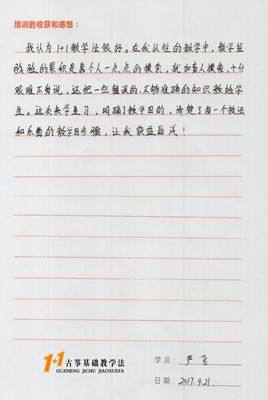 培训的收获和感想：
我认为1+1教学法很好。在我以往的教学中，教学经
验的累积是靠个人一点点的摸索，就如盲人摸象，十分
艰难不易说，还把一些错误的、不够准确的知识教给学
生。这次来学习，明确了教学目的，清楚了每一个技法
和乐曲的教学步骤，让我获益匪浅！
1+1古筝基础教学法
GUZHENG JICHU JIAOXUEFA
学员：严飞
日期：2017.9.21.